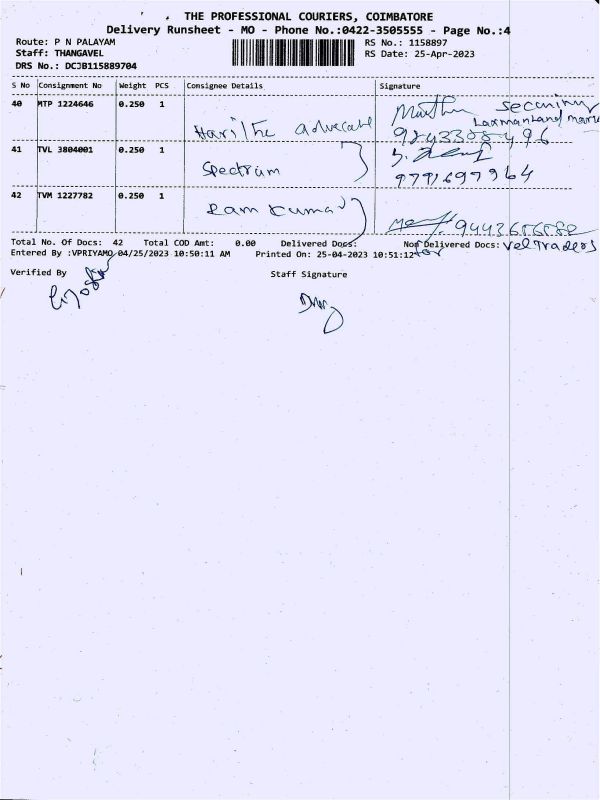 THE PROFESSIONAL COURIERS, COIMBATORE
Delivery Runsheet - MO - Phone No.:0422-3505555 - Page No.:4
Route: P N PALAYAM
RS No.: 1158897
Staff: THANGAVEL
RS Date: 25-Apr-2023
DRS No.: DCJB115889704
S No Consignment No Weight PCS Consignee Details Signature
40 MTP 1224646 0.250 1
Laxman
advocate
41 TVL 3804001 0.250 1
Spectrum
42 TVM 1227782 0.250 1
Ram Kumar
Total No. Of Docs: 42 Total COD Amt: 0.00 Delivered Docs: Non Delivered Docs: Vel Traders
for
Entered By :VPRIYAMO 04/25/2023 10:50:11 AM Printed On: 25-04-2023 10:51:12
Verified By Staff Signature